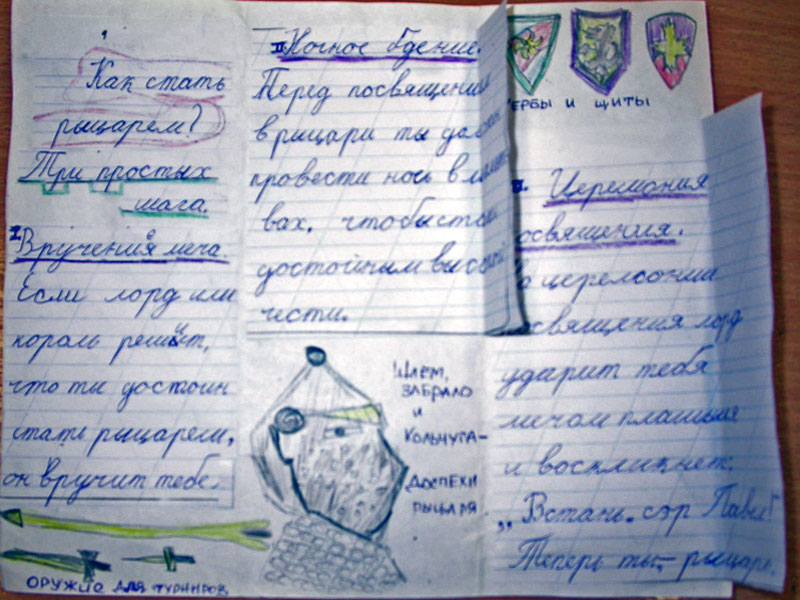 Как стать
рыцарем?
Три простых
шага.
I
Вручения меча.
Если лорд или
король решит,
что ты достоин
стать рыцарем,
он вручит тебе.
ОРУЖИЕ ДЛЯ ТУРНИРОВ
II Ночное бдение.
Перед посвящения
в рыцари ты
провести ночь в
вах, чтобы
достойным высокой
чести.
ШЛЕМ,
ЗАБРАЛО
И
КОЛЬЧУГА-
ДОСПЕХИ
РЫЦАРЯ
ЕРБЫ И ЩИТЫ
Церемония
освящения.
церемониа
священия лорд
ударит тебя
мечом плашмя
и воскликнет:
„Встань, сэр
Теперь ты- рыцарь.